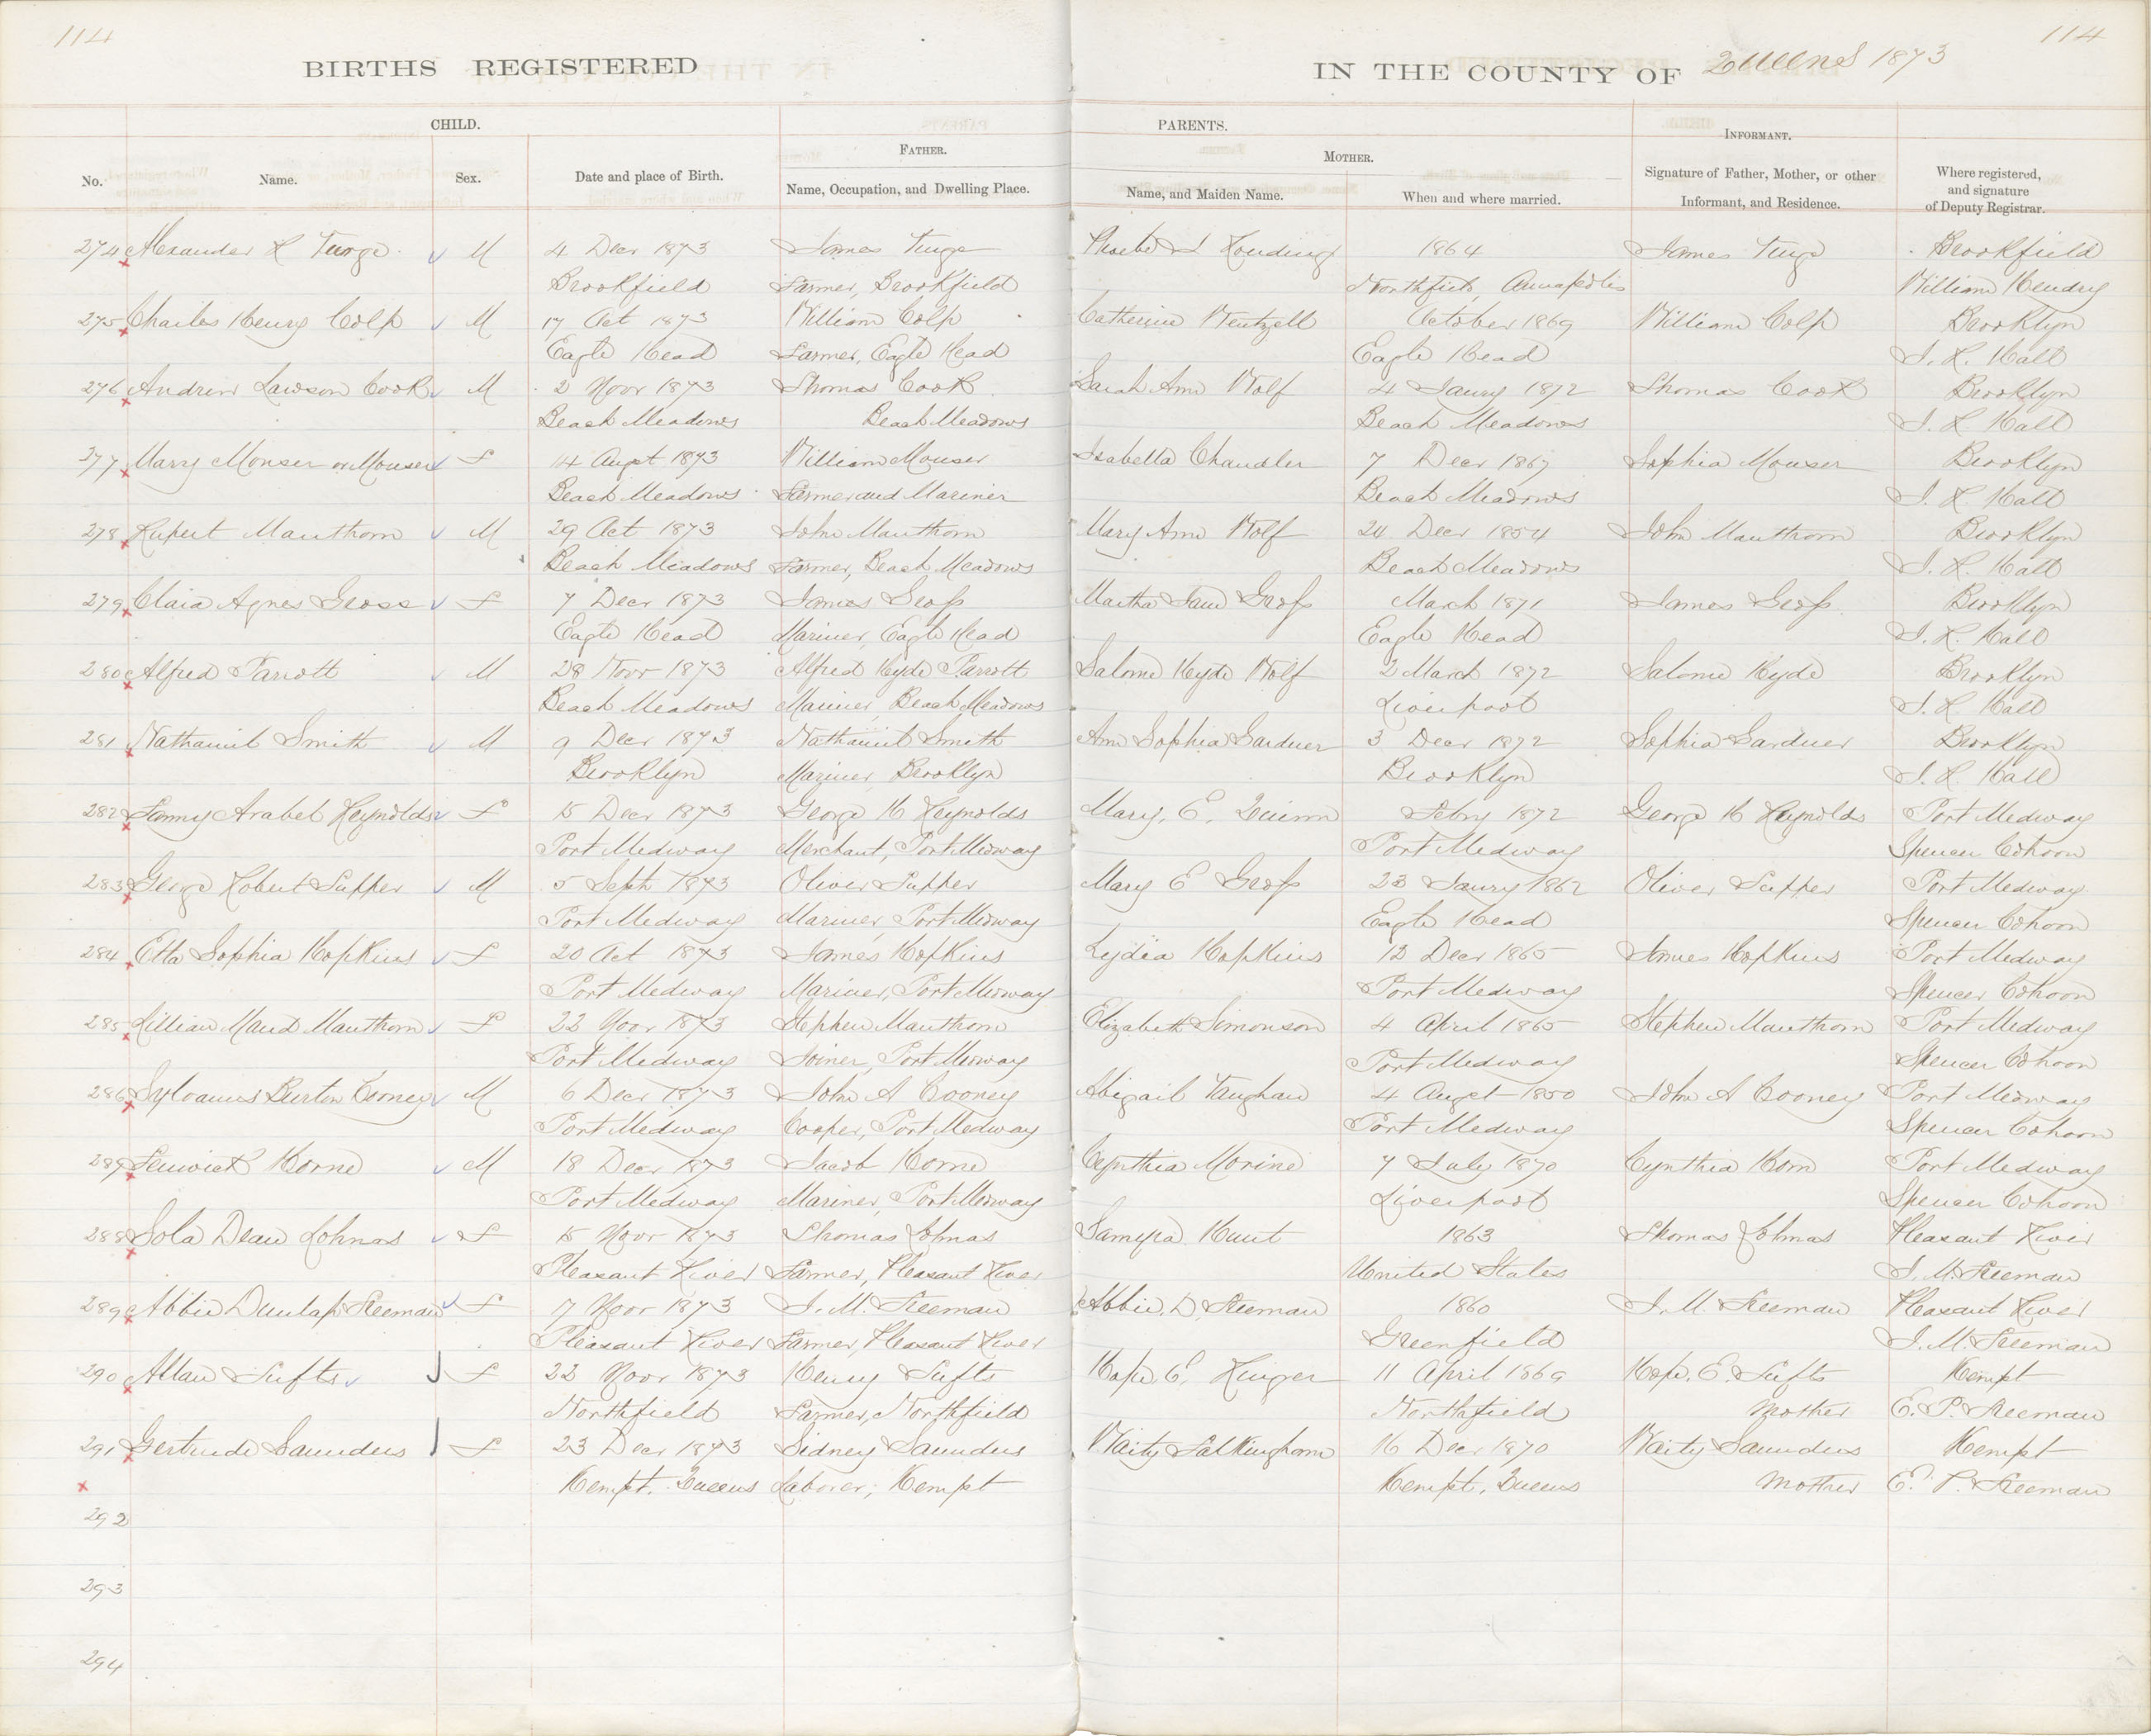 114
114
BIRTHS REGISTERED
IN THE COUNTY OF Queens 1873
CHILD.
PARENTS.
FATHER.
MOTHER.
INFORMANT.
No.
Name.
Sex.
Date and place of Birth.
Name, Occupation, and Dwelling Place.
Name, and Maiden Name.
When and where married.
Signature of Father, Mother, or other
Informant, and Residence.
Where registered,
and signature
of Deputy Registrar.
274 Alexander M 4 Decr 1873 James 1864 James Brookfield
Brookfield Farmer, Brookfield Northfield, Annapolis William Hendry
275 Charles Henry Colp M 17 Oct 1873 William Colp Catherine Wentzell October 1869 William Colp Brooklyn
Eagle Head Farmer, Eagle Head Eagle Head Hall
276 Andrew Lawson Cook M 2 Novr 1873 Thomas Cook Sarah Ann Wolf 4 Jaury 1872 Thomas Cook Brooklyn
Beach Meadows Beach Meadows Beach Meadows Hall
277 Mary Monser or Mouser F 14 Augst 1873 William Mouser Isabella Chandler 7 Decr 1867 Sophia Mouser Brooklyn
Beach Meadows Farmer and Mariner Beach Meadows Hall
278 Rupert Manthorn M 29 Oct 1873 John Manthorn Mary Ann Wolf 24 Decr 1854 John Manthorn Brooklyn
Beach Meadows Farmer, Beach Meadows Beach Meadows Hall
279 Clara Agnes Gross F 7 Decr 1873 James Gross Martha Jane Gross March 1871 James Gross Brooklyn
Eagle Head Mariner, Eagle Head Eagle Head Hall
280 Alfred Parrott M 28 Novr 1873 Alfred Hyde Parrott Salome Hyde Wolf 2 March 1872 Salome Hyde Brooklyn
Beach Meadows Mariner, Beach Meadows Liverpool Hall
281 Nathaniel Smith M 9 Decr 1873 Nathaniel Smith Ann Sophia Gardner 3 Decr 1872 Sophia Gardner Brooklyn
Brooklyn Mariner, Brooklyn Brooklyn Hall
282 Fanny Arabel Reynolds F 15 Decr 1873 George H Reynolds Mary, E. Quinn Febry 1872 George H Reynolds Port Medway
Port Medway Merchant, Port Medway Port Medway Spencer Cohoon
283 George Robert Supper M 5 Septr 1873 Oliver Supper Mary E Gross 23 Jaury 1862 Oliver Supper Port Medway
Port Medway Mariner, Port Medway Eagle Head Spencer Cohoon
284 Etta Sophia Hopkins F 20 Oct 1873 James Hopkins Lydia Hopkins Decr 1865 James Hopkins Port Medway
Port Medway Mariner, Port Medway Port Medway Spencer Cohoon
285 Lillian Maud Manthorn F 22 Novr 1873 Stephen Manthorn Elizabeth Simonson 4 April 1865 Stephen Manthorn Port Medway
Port Medway Joiner, Port Medway Port Medway Spencer Cohoon
286 Sylvanus Burton Cooney M 6 Decr 1873 John A Cooney Abigail Vaughan 4 Augst 1850 John A Cooney Port Medway
Port Medway Cooper, Port Medway Port Medway Spencer Cohoon
287 Fenwick Horne M 18 Decr 1873 Jacob Horne Cynthia Morine 7 July 1870 Cynthia Horn Port Medway
Port Medway Mariner, Port Medway Liverpool Spencer Cohoon
288 Dean Lohnas F 15 Novr 1873 Thomas Lohnas Hunt 1863 Thomas Lohnas Pleasant River
Pleasant River Farmer, Pleasant River United States J. M. Freeman
289 Abbie Dunlap Freeman F 7 Novr 1873 J. M. Freeman Abbie. D. Freeman 1860 J. M. Freeman Pleasant River
Pleasant River Farmer, Pleasant River Greenfield J. M. Freeman
290 Allan Tufts F 22 Novr 1873 Henry Tufts Hope. E. 11 April 1869 Hope. E. Tufts Kempt
Northfield Farmer, Northfield Northfield Mother E. P. Freeman
291 Gertrude Saunders F 23 Decr 1873 Sidney Saunders Waity 16 Decr 1870 Waity Saunders Kempt
Kempt. Queens Laborer; Kempt Kempt, Queens Mother E. P. Freeman
292
293
294